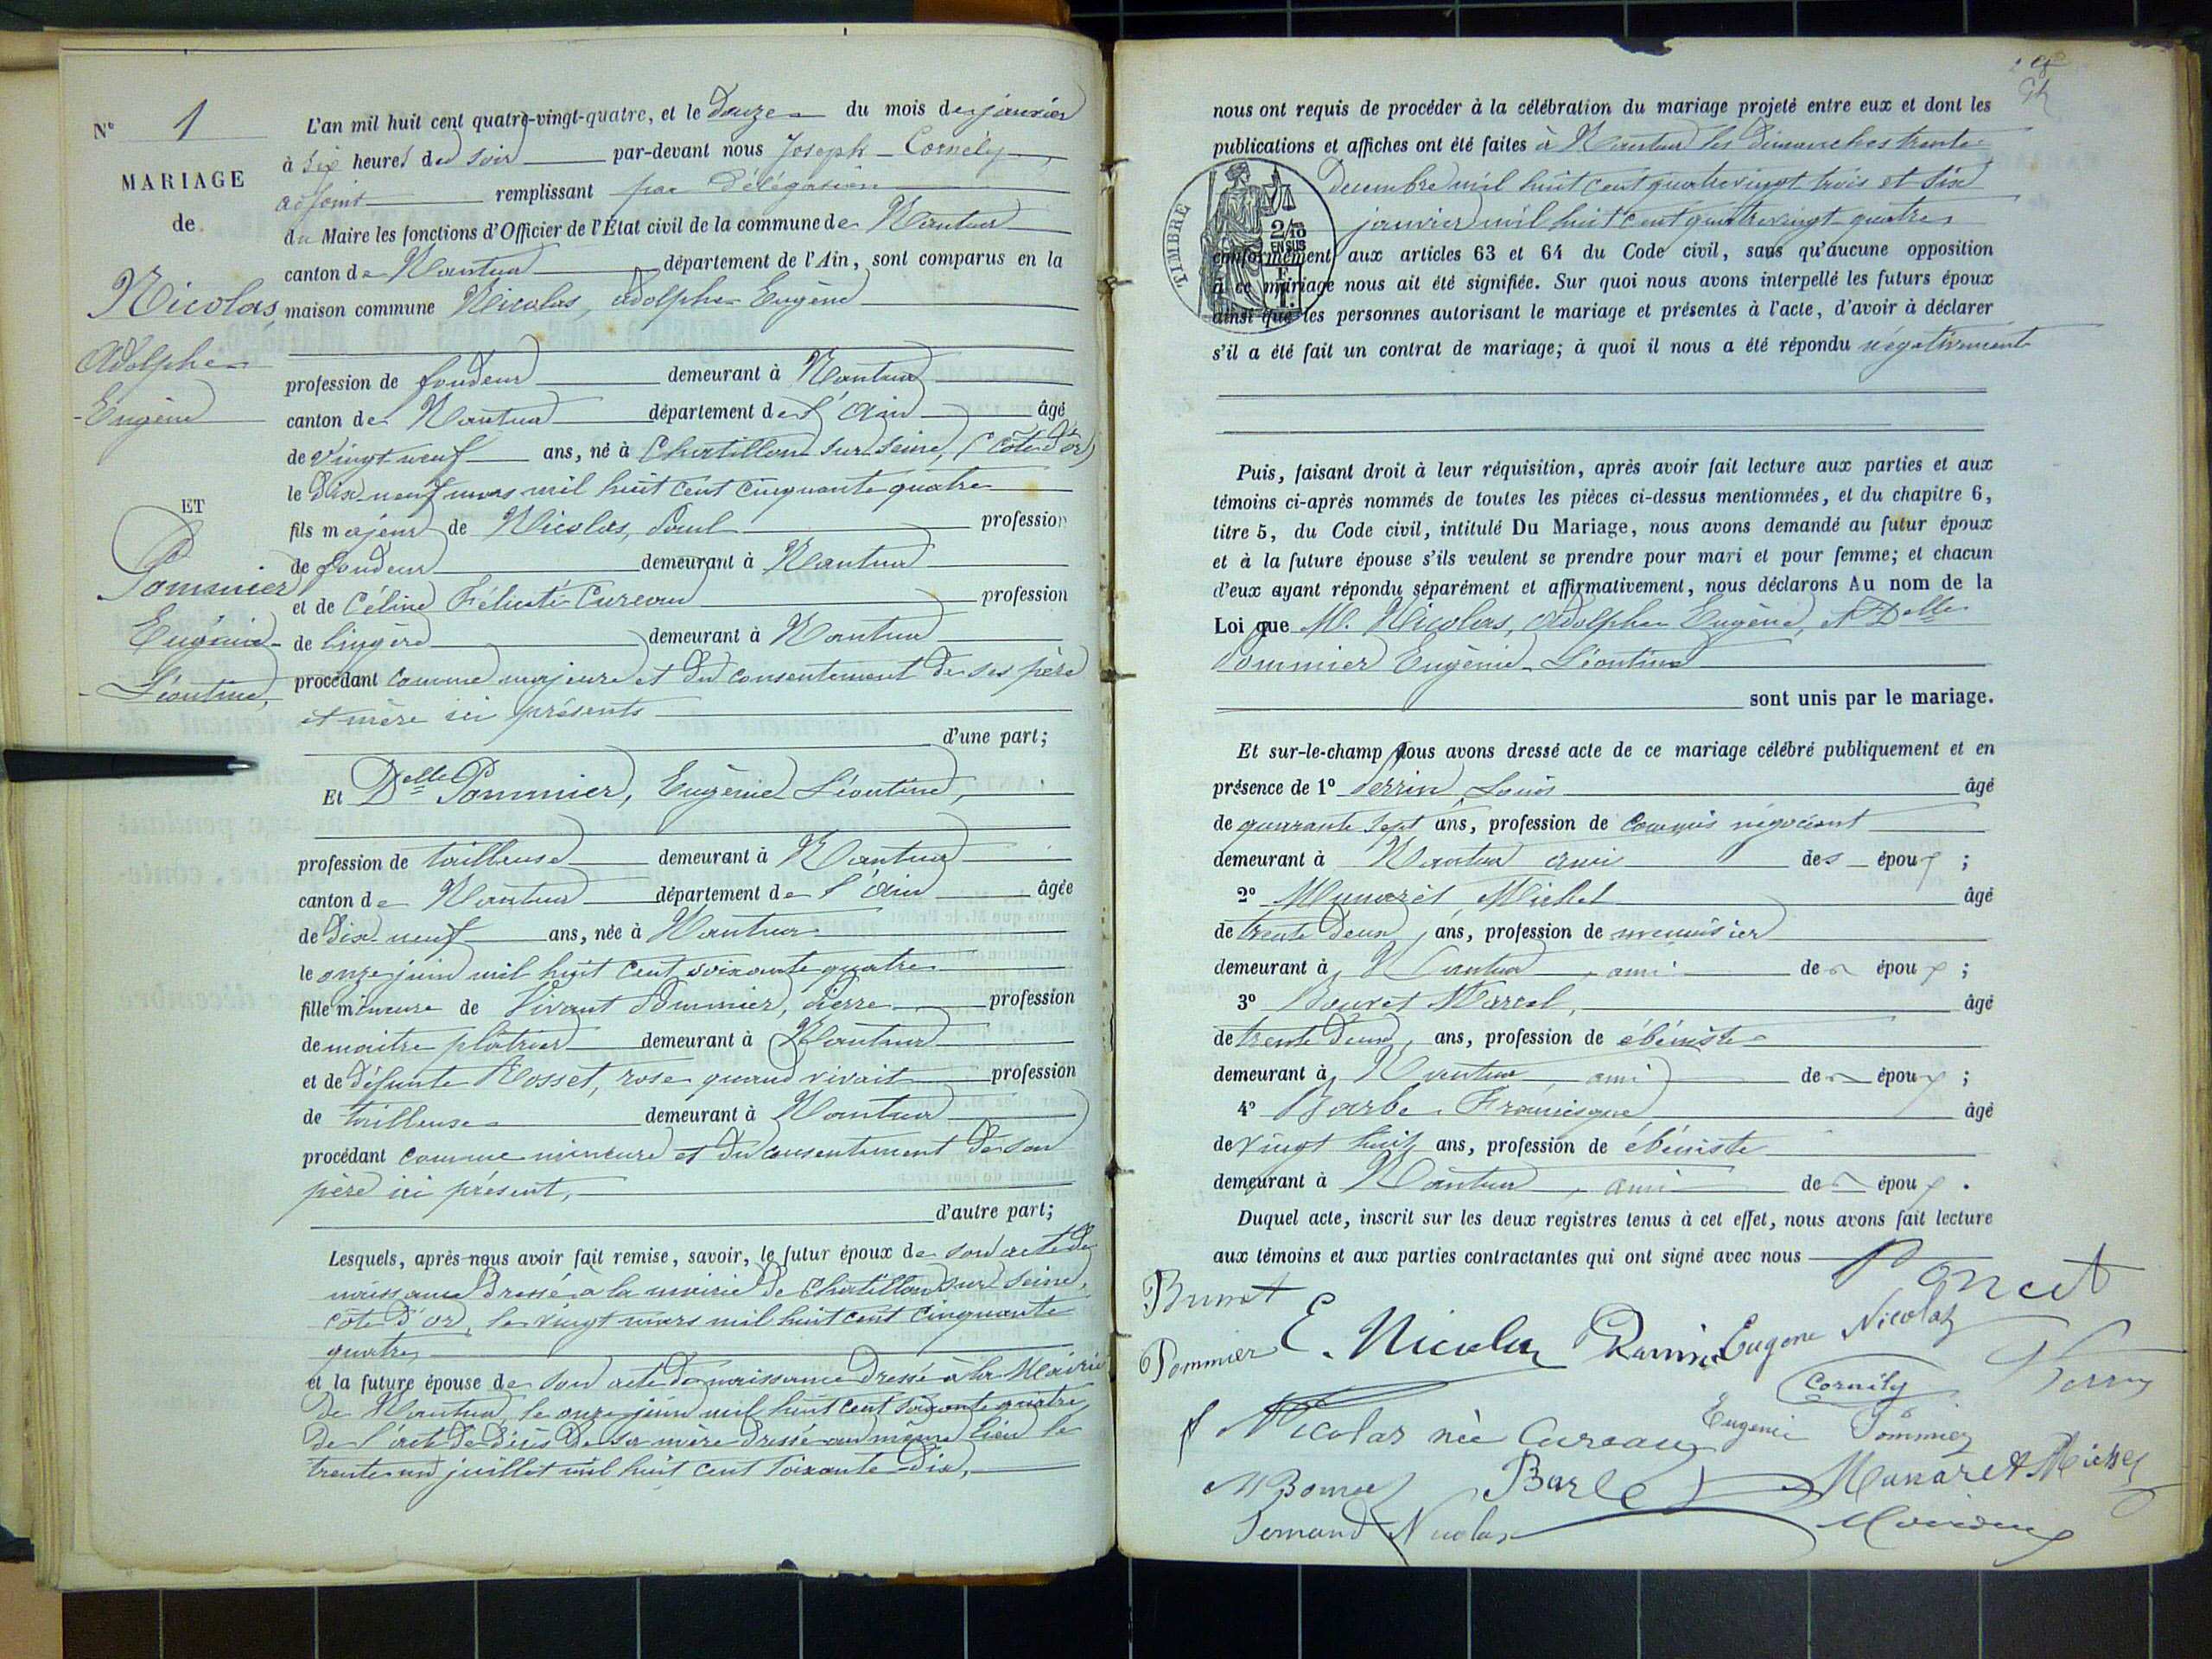 N° 1
MARIAGE
de
Nicolas
Adolphe
Eugène
ET
Pommier
Eugénie
Léontine,
L'an mil huit cent quatre-vingt-quatre, et le douze du mois de janvier
à six heures du soir par-devant nous Joseph Cornély,
adjoint remplissant par délégation
du Maire les fonctions d'Officier de l'État civil de la commune de Nantua
canton de Nantua département de l'Ain, sont comparus en la
maison commune Nicolas, Adolphe Eugène
profession de fondeur demeurant à Nantua
canton de Nantua département de l'Ain âgé
de vingt neuf ans, né à Chatillon sur Seine, (Côte d'or)
le dix neuf mars mil huit cent cinquante quatre
fils majeur de Nicolas, Paul profession
de fondeur demeurant à Nantua
et de Céline Félicité Cureau profession
de lingère demeurant à Nantua
procédant comme majeure et du consentement de ses père
et mère ici présents
d'une part;
Et Delle Pommier, Eugénie Léontine,
profession de tailleuse demeurant à Nantua
canton de Nantua département de l'Ain âgée
de dix neuf ans, née à Nantua
le onze juin mil huit cent soixante quatre
fille mineure de vivant Pommier, Pierre profession
de maitre plâtrier demeurant à Nantua
et de défunte Rosset, rose quand vivait profession
de tailleuse demeurant à Nantua
procédant comme mineure et du consentement de son
père ici présent,
d'autre part;
Lesquels, après nous avoir fait remise, savoir, le futur époux de son acte de
naissance dressé à la mairie de Chatillon sur Seine,
côte d'or, le vingt mars mil huit cent cinquante
quatre,
et la future épouse de son acte de naissance dressé à la Mairie
de Nantua, le onze juin mil huit cent soixante quatre,
de l'acte de décès de sa mère dressé au même lieu le
trente un juillet mil huit cent soixante dix,
nous ont requis de procéder à la célébration du mariage projeté entre eux et dont les
publications et affiches ont été faites à Nantua les dimanches trente
décembre mil huit cent quatre vingt trois et six
janvier mil huit cent quatre vingt quatre
TIMBRE
2/10
EN SUS
conformément aux articles 63 et 64 du Code civil, sans qu'aucune opposition
à ce mariage nous ait été signifiée. Sur quoi nous avons interpellé les futurs époux
ainsi que les personnes autorisant le mariage et présentes à l'acte, d'avoir à déclarer
s'il a été fait un contrat de mariage; à quoi il nous a été répondu négativement
Puis, faisant droit à leur réquisition, après avoir fait lecture aux parties et aux
témoins ci-après nommés de toutes les pièces ci-dessus mentionnées, et du chapitre 6,
titre 5, du Code civil, intitulé Du Mariage, nous avons demandé au futur époux
et à la future épouse s'ils veulent se prendre pour mari et pour femme; et chacun
d'eux ayant répondu séparément et affirmativement, nous déclarons Au nom de la
Loi que M. Nicolas, Adolphe Eugène, et Delle
Pommier Eugénie Léontine
sont unis par le mariage.
Et sur-le-champ Nous avons dressé acte de ce mariage célébré publiquement et en
présence de 1° Perrin, Louis âgé
de quarante sept ans, profession de Commis négociant
demeurant à Nantua ami des époux ;
2° Munaret, Michel âgé
de trente deux ans, profession de menuisier
demeurant à Nantua, ami des époux ;
3° Bouvet Marcel, âgé
de trente deux, ans, profession de ébéniste
demeurant à Nantua, ami des époux ;
4° Barbe Francisque âgé
de vingt huit ans, profession de ébéniste
demeurant à Nantua, ami des époux .
Duquel acte, inscrit sur les deux registres tenus à cet effet, nous avons fait lecture
aux témoins et aux parties contractantes qui ont signé avec nous
Poncet
Brunet
Pommier E. Nicolas Eugène Nicolas
Cornély Perrin
Nicolas née Cureau Eugenie Pommier
M Bouvet Barbe Munaret Michel
Fernand Nicolas